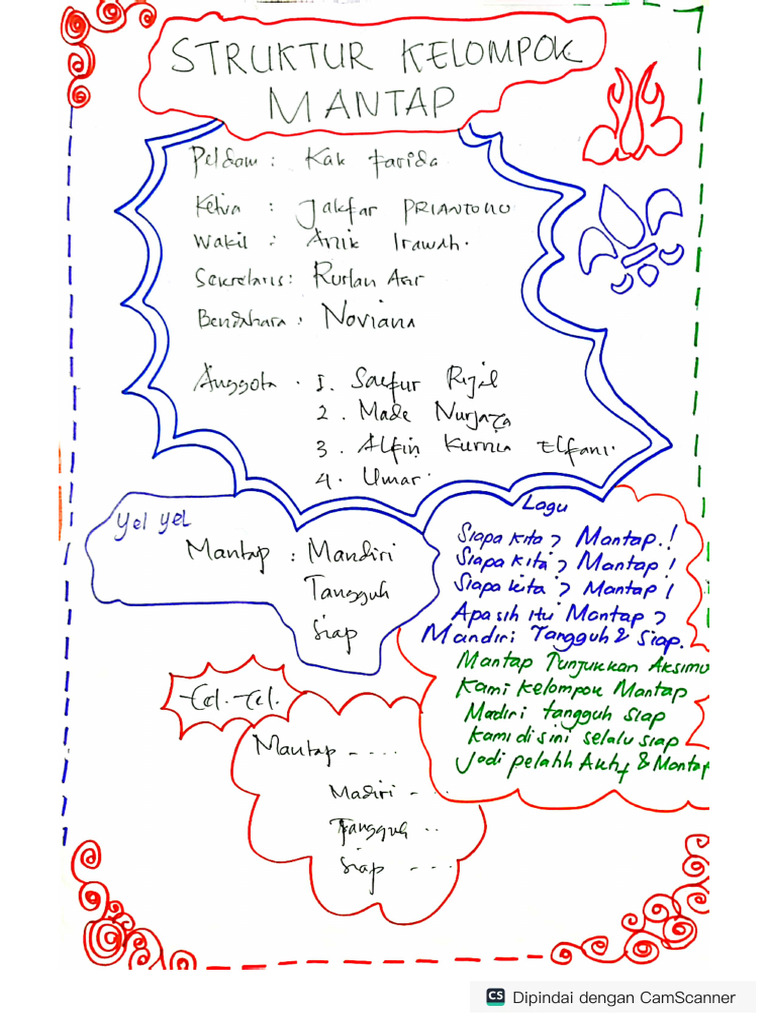 STRUKTUR KELOMPOK
MANTAP
Peldam : Kak Farida
Ketua : Jakfar PRIANTONO
Wakil : Anik Irawah.
Sekretaris : Ruslan
Bendahara : Noviana
Anggota . 1. Saefur Rijil
2. Made
3. Alfin Kurnia Elfani.
4. Umar.
Yel yel
Mantap : Mandiri
Tangguh
Siap
Lagu
Siapa kita ? Mantap.!
Siapa kita ? Mantap !
Siapa kita ? Mantap !
Apa sih itu Mantap ?
Mandiri Tangguh & Siap.
Mantap Tunjukkan Aksimu
Kami Kelompok Mantap
Madiri tangguh siap
Kami disini selalu siap
Jadi pelatih & Mantap
Yel. Yel.
Mantap - - . . .
Madiri - . .
Tangguh . .
Siap - - - .
CS Dipindai dengan CamScanner